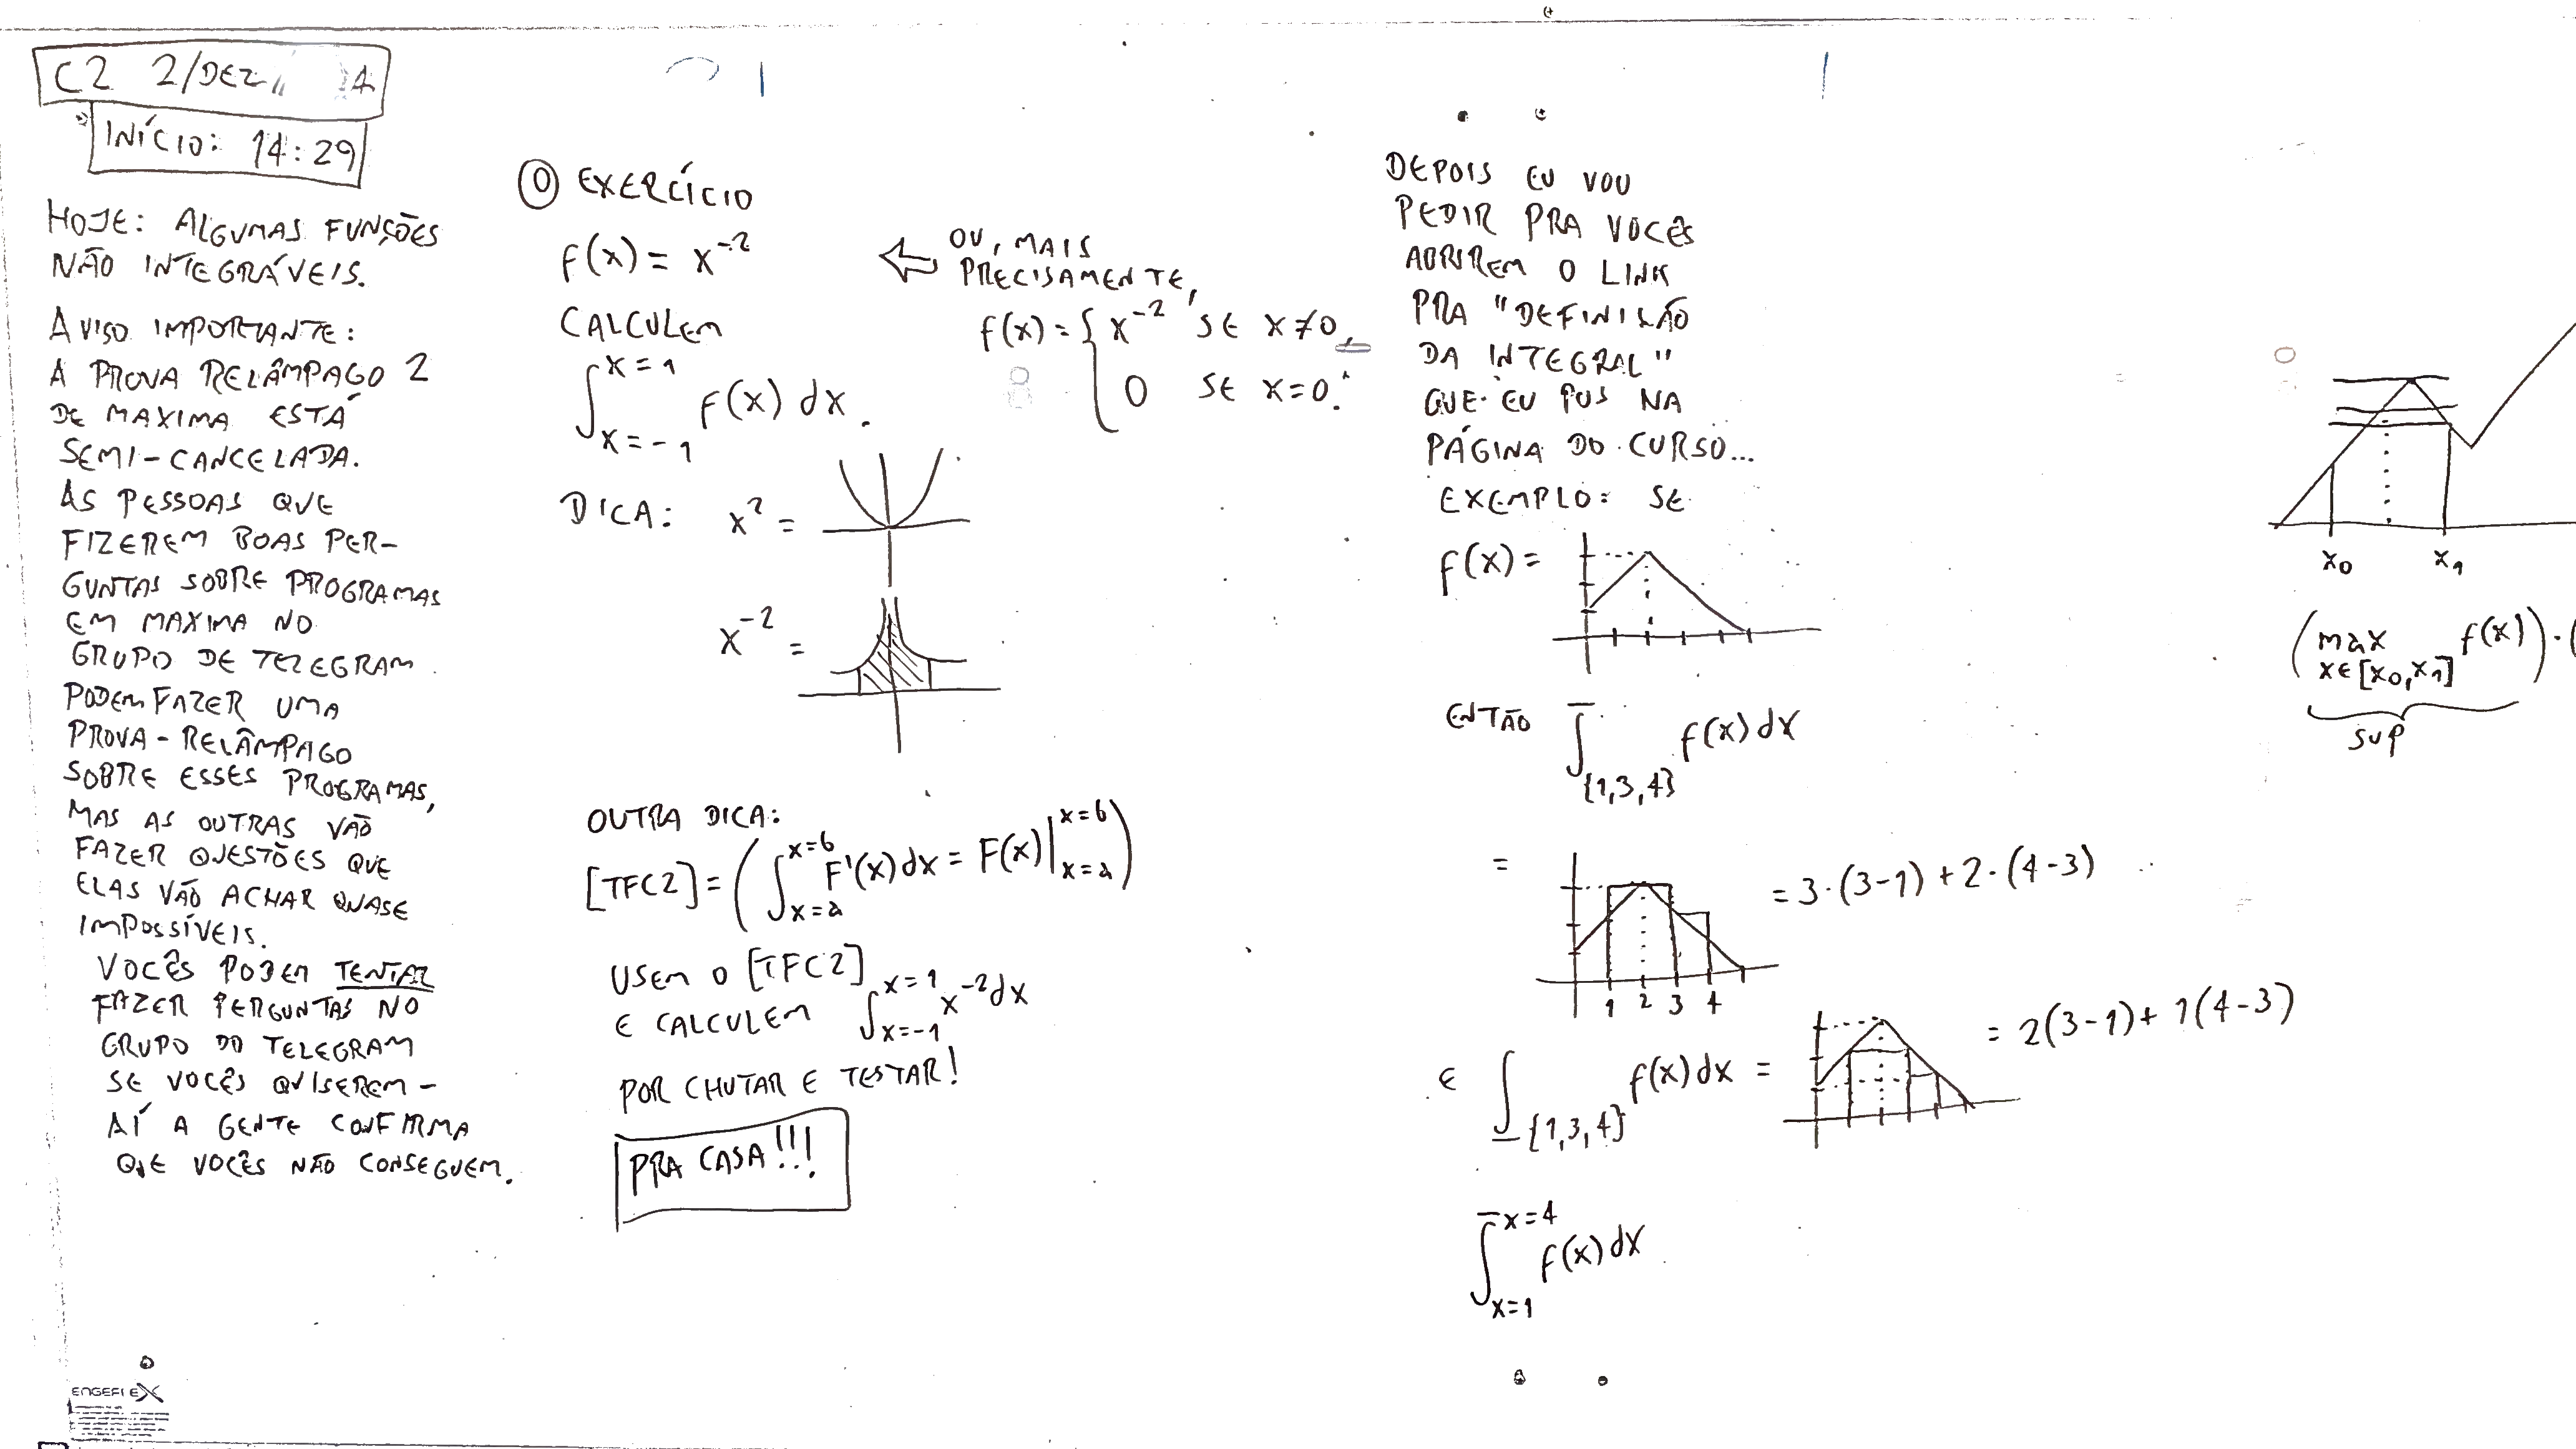 C2 2/DEZ
INÍCIO: 14:29
HOJE: ALGUMAS FUNÇÕES
NÃO INTEGRÁVEIS.
AVISO IMPORTANTE:
A PROVA RELÂMPAGO 2
DE MAXIMA ESTÁ
SEMI-CANCELADA.
AS PESSOAS QUE
FIZEREM BOAS PER-
GUNTAS SOBRE PROGRAMAS
EM MAXIMA NO
GRUPO DE TELEGRAM
PODEM FAZER UMA
PROVA-RELÂMPAGO
SOBRE ESSES PROGRAMAS,
MAS AS OUTRAS VÃO
FAZER QUESTÕES QUE
ELAS VÃO ACHAR QUASE
IMPOSSÍVEIS.
VOCÊS PODEM TENTAR
FAZER PERGUNTAS NO
GRUPO DO TELEGRAM
SE VOCÊS QUISEREM -
AÍ A GENTE CONFIRMA
QUE VOCÊS NÃO CONSEGUEM.
ENGEFLEX
⓪ EXERCÍCIO
f(x) = x⁻²
⇐ OU, MAIS
PRECISAMENTE,
f(x) = { x⁻² SE x≠0,
0 SE x=0.
CALCULEM
∫_{x=-1}^{x=1} f(x) dx.
DICA: x² =
x⁻² =
OUTRA DICA:
[TFC2] = ( ∫_{x=a}^{x=b} F'(x) dx = F(x)|_{x=a}^{x=b} )
USEM O [TFC2]
E CALCULEM ∫_{x=-1}^{x=1} x⁻² dx
POR CHUTAR E TESTAR!
PRA CASA!!!
DEPOIS EU VOU
PEDIR PRA VOCÊS
ABRIREM O LINK
PRA "DEFINIÇÃO
DA INTEGRAL"
QUE EU PUS NA
PÁGINA DO CURSO...
EXEMPLO: SE
f(x) =
ENTÃO ∫̅_{{1,3,4}} f(x) dx
= = 3·(3-1) + 2·(4-3)
1 2 3 4
E ∫̲_{{1,3,4}} f(x) dx = = 2(3-1) + 1(4-3)
∫̅_{x=1}^{x=4} f(x) dx
x₀ x₁
( max_{x∈[x₀,x₁]} f(x) ) · (
sup